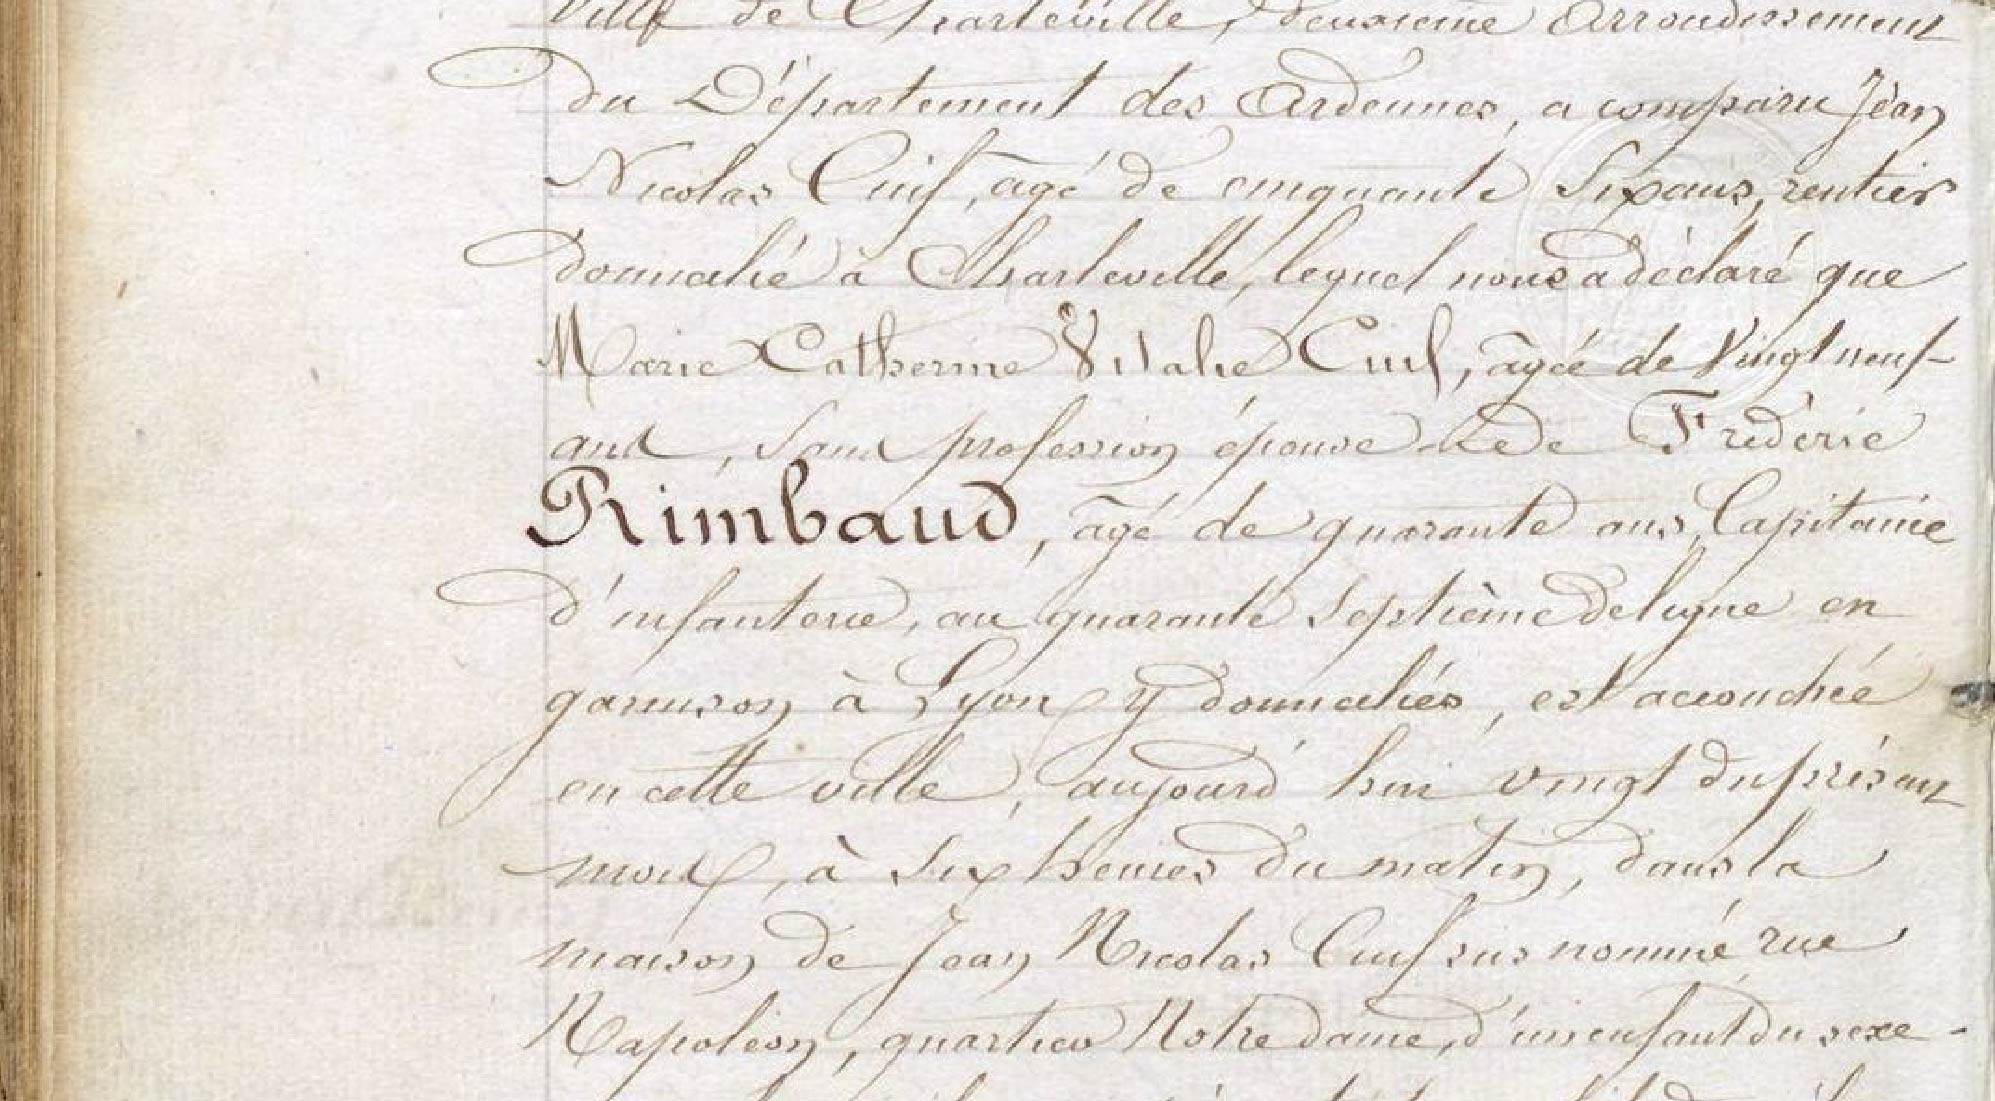 ville de Charleville, deuxième arrondissement
du Département des Ardennes, a comparu Jean
Nicolas Cuif, agé de cinquante six ans, rentier
domicilié à Charleville, lequel nous a déclaré que
Marie Catherine Vitalie Cuif, âgée de vingt neuf
ans, sans profession épouse de Frédéric
Rimbaud, âgé de quarante ans, Capitaine
d'infanterie, au quarante septième de ligne en
garnison à Lyon y domiciliés, est accouchée
en cette ville, aujourd'hui vingt du présent
mois, à six heures du matin, dans la
maison de Jean Nicolas Cuif sus nommé rue
Napoléon, quartier Notre dame, d'un enfant du sexe -